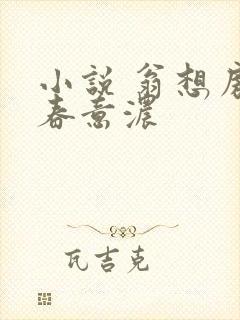 小說 翁想房
春意濃
瓦吉克